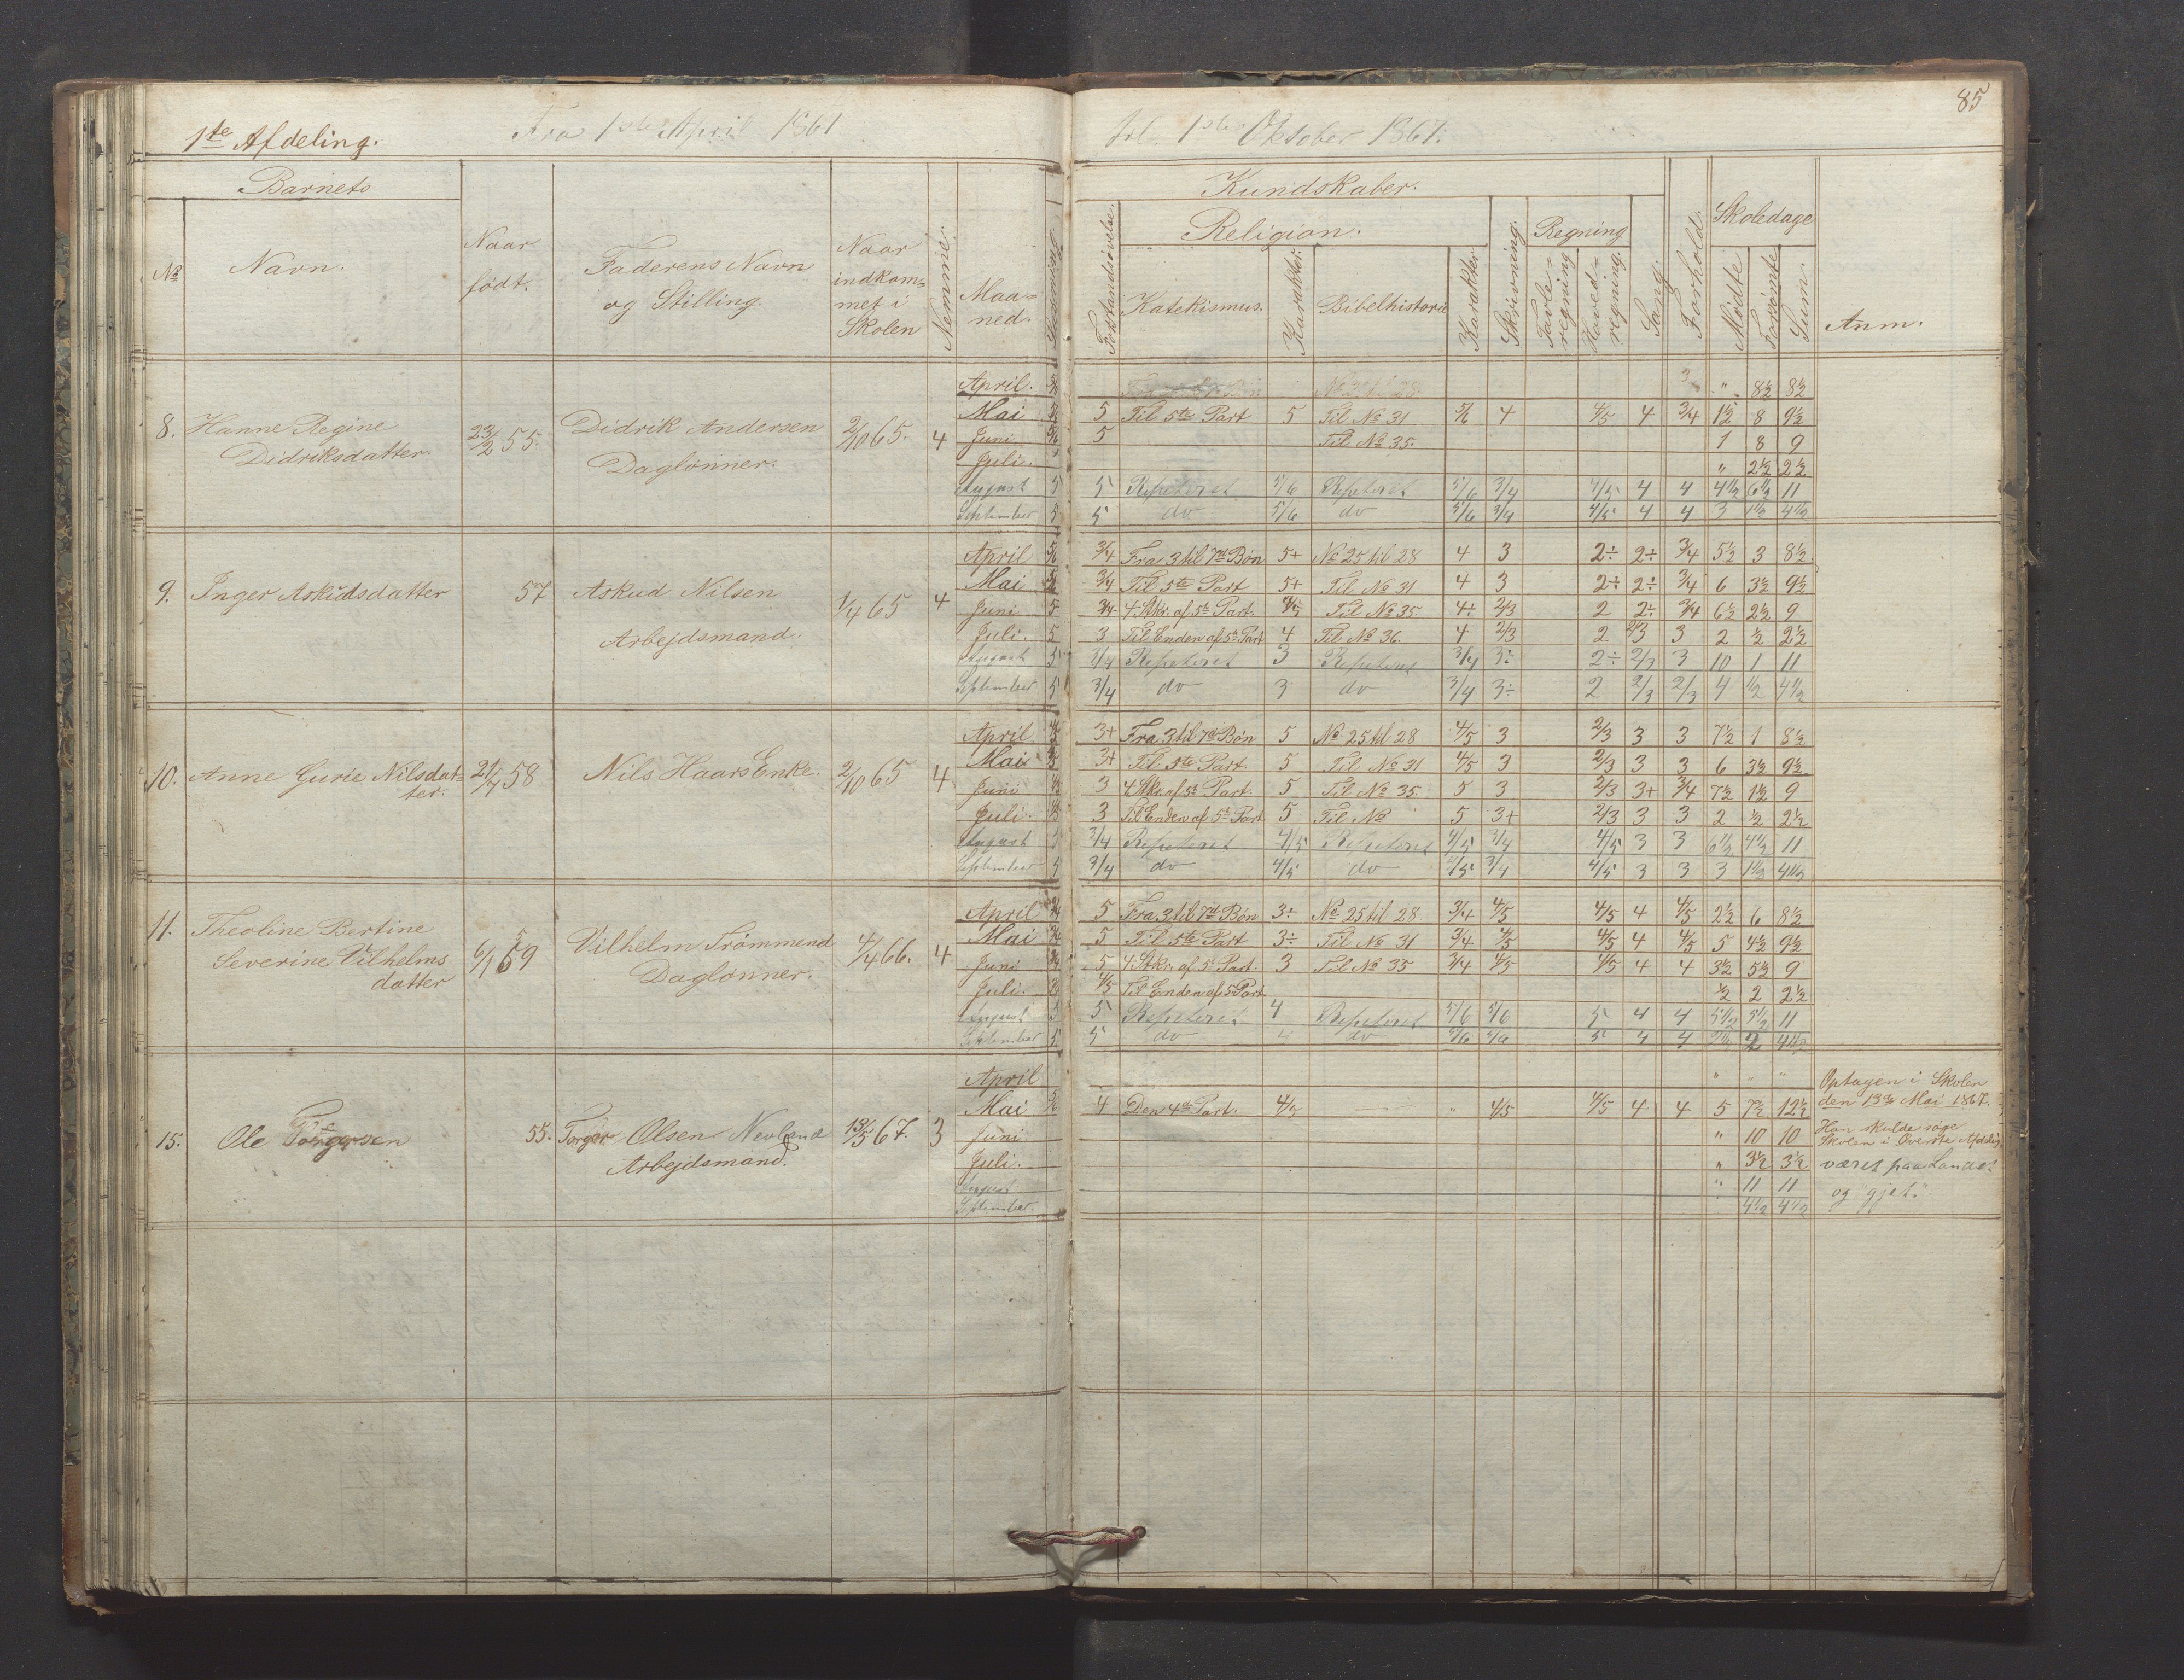 85
1ste Afdeling.
Fra 1ste April 1867
til 1ste Oktober 1867.
Barnets
Kundskaber.
Skoledage
Religion.
Regning
No
Navn.
Naar født.
Faderens Navn og Stilling.
Naar indkommet i Skolen
Nemme.
Maaned.
Forstandsøvelse.
Katekismus.
Karakter
Bibelhistorie
Karakter
Skrivning.
Tavleregning
Hovedregning.
Sang.
Forhold.
Mødte
Forsømte
Sum.
Anm.
April. No 25 til 28 3 " 8½ 8½
8. Hanne Regine Didriksdatter. 23/2 55. Didrik Andersen Daglønner. 2/10 65. 4
Mai 5 Til 5te Part 5 Til No 31 5/6 4 4/5 4 3/4 1½ 8 9½
Juni 5 Til No 35. 1 8 9
Juli. " 2½ 2½
August 5 5 Repeteret 5/6 Repeteret 5/6 3/4 4/5 4 4 4½ 6½ 11
September 5 5 do 5/6 do 5/6 3/4 4/5 4 4 3 1½ 4½
April 5/6 3/4 Fra 3 til 7de Bøn 5+ No 25 til 28 4 3 2÷ 2÷ 3/4 5½ 3 8½
9. Inger Askudsdatter 57 Askud Nilsen Arbejdsmand. 1/4 65 4
Mai 3/4 Til 5te Part 5+ Til No 31 4 3 2÷ 2÷ 3/4 6 3½ 9½
Juni 5 3/4 4 Stkr. af 5te Part. 4/5 Til No 35 4÷ 2/3 2 2÷ 3/4 6½ 2½ 9
Juli. 5 3 Til Enden af 5te Part 4 Til No 36. 4 2/3 2 2/3 3 2 ½ 2½
August 5 3/4 Repeteret 3 Repeteret 3/4 3÷ 2÷ 2/3 3 10 1 11
September 5 3/4 do 3 do 3/4 3÷ 2 2/3 2/3 4 ½ 4½
April 4/5 3+ Fra 3 til 7de Bøn 5 No 25 til 28 4/5 3 2/3 3 3 7½ 1 8½
10. Anne Gurie Nilsdatter. 21/7 58 Nils Haars Enke. 2/10 65 4
Mai 3+ Til 5te Part 5 Til No 31 4/5 3 2/3 3 3 6 3½ 9½
Juni 3 4 Stkr. af 5te Part. 5 Til No 35. 5 3 2/3 3+ 3/4 7½ 1½ 9
Juli. 3 Til Enden af 5te Part 5 Til No 5 3+ 2/3 3 3 2 ½ 2½
August 5 3/4 Repeteret 4/5 Repeteret 4/5 3/4 4/5 3 3 6½ 4½ 11
September 5 3/4 do 4/5 do 4/5 3/4 4/5 3 3 3 1½ 4½
April 5 Fra 3 til 7de Bøn 3÷ No 25 til 28 3/4 4/5 4/5 4 4/5 2½ 6 8½
11. Theoline Bertine Severine Vilhelms datter 6/1 59 Vilhelm Trömmend Daglønner. 4/4 66. 4
Mai 5 Til 5te Part 3÷ Til No 31 3/4 4/5 4/5 4 4/5 5 4½ 9½
Juni 5 4 Stkr. af 5te Part. 3 Til No 35 3/4 4/5 4/5 4 4 3½ 5½ 9
Juli. 4/5 Til Enden af 5 Part ½ 2 2½
August 5 5 Repeteret 4 Repeteret 5/6 5/6 5 4 4 5½ 5½ 11
September 5 5 do 4 do 5/6 5/6 5 4 4 2½ 2 4½
April " " " Optagen i Skolen
15. Ole Torgersen 55. Torger Olsen Nevland Arbejdsmand. 13/5 67. 3
Mai 4 Den 4de Part. 4/5 — " 4/5 4/5 4 4 5 7½ 12½ den 13de Mai 1867.
Juni " 10 10 Han skulde søge Skolen i Øverste Afdeling
Juli. " 3½ 3½ været paa Landet
August " 11 11 og "gjet."
September 4½ 4½